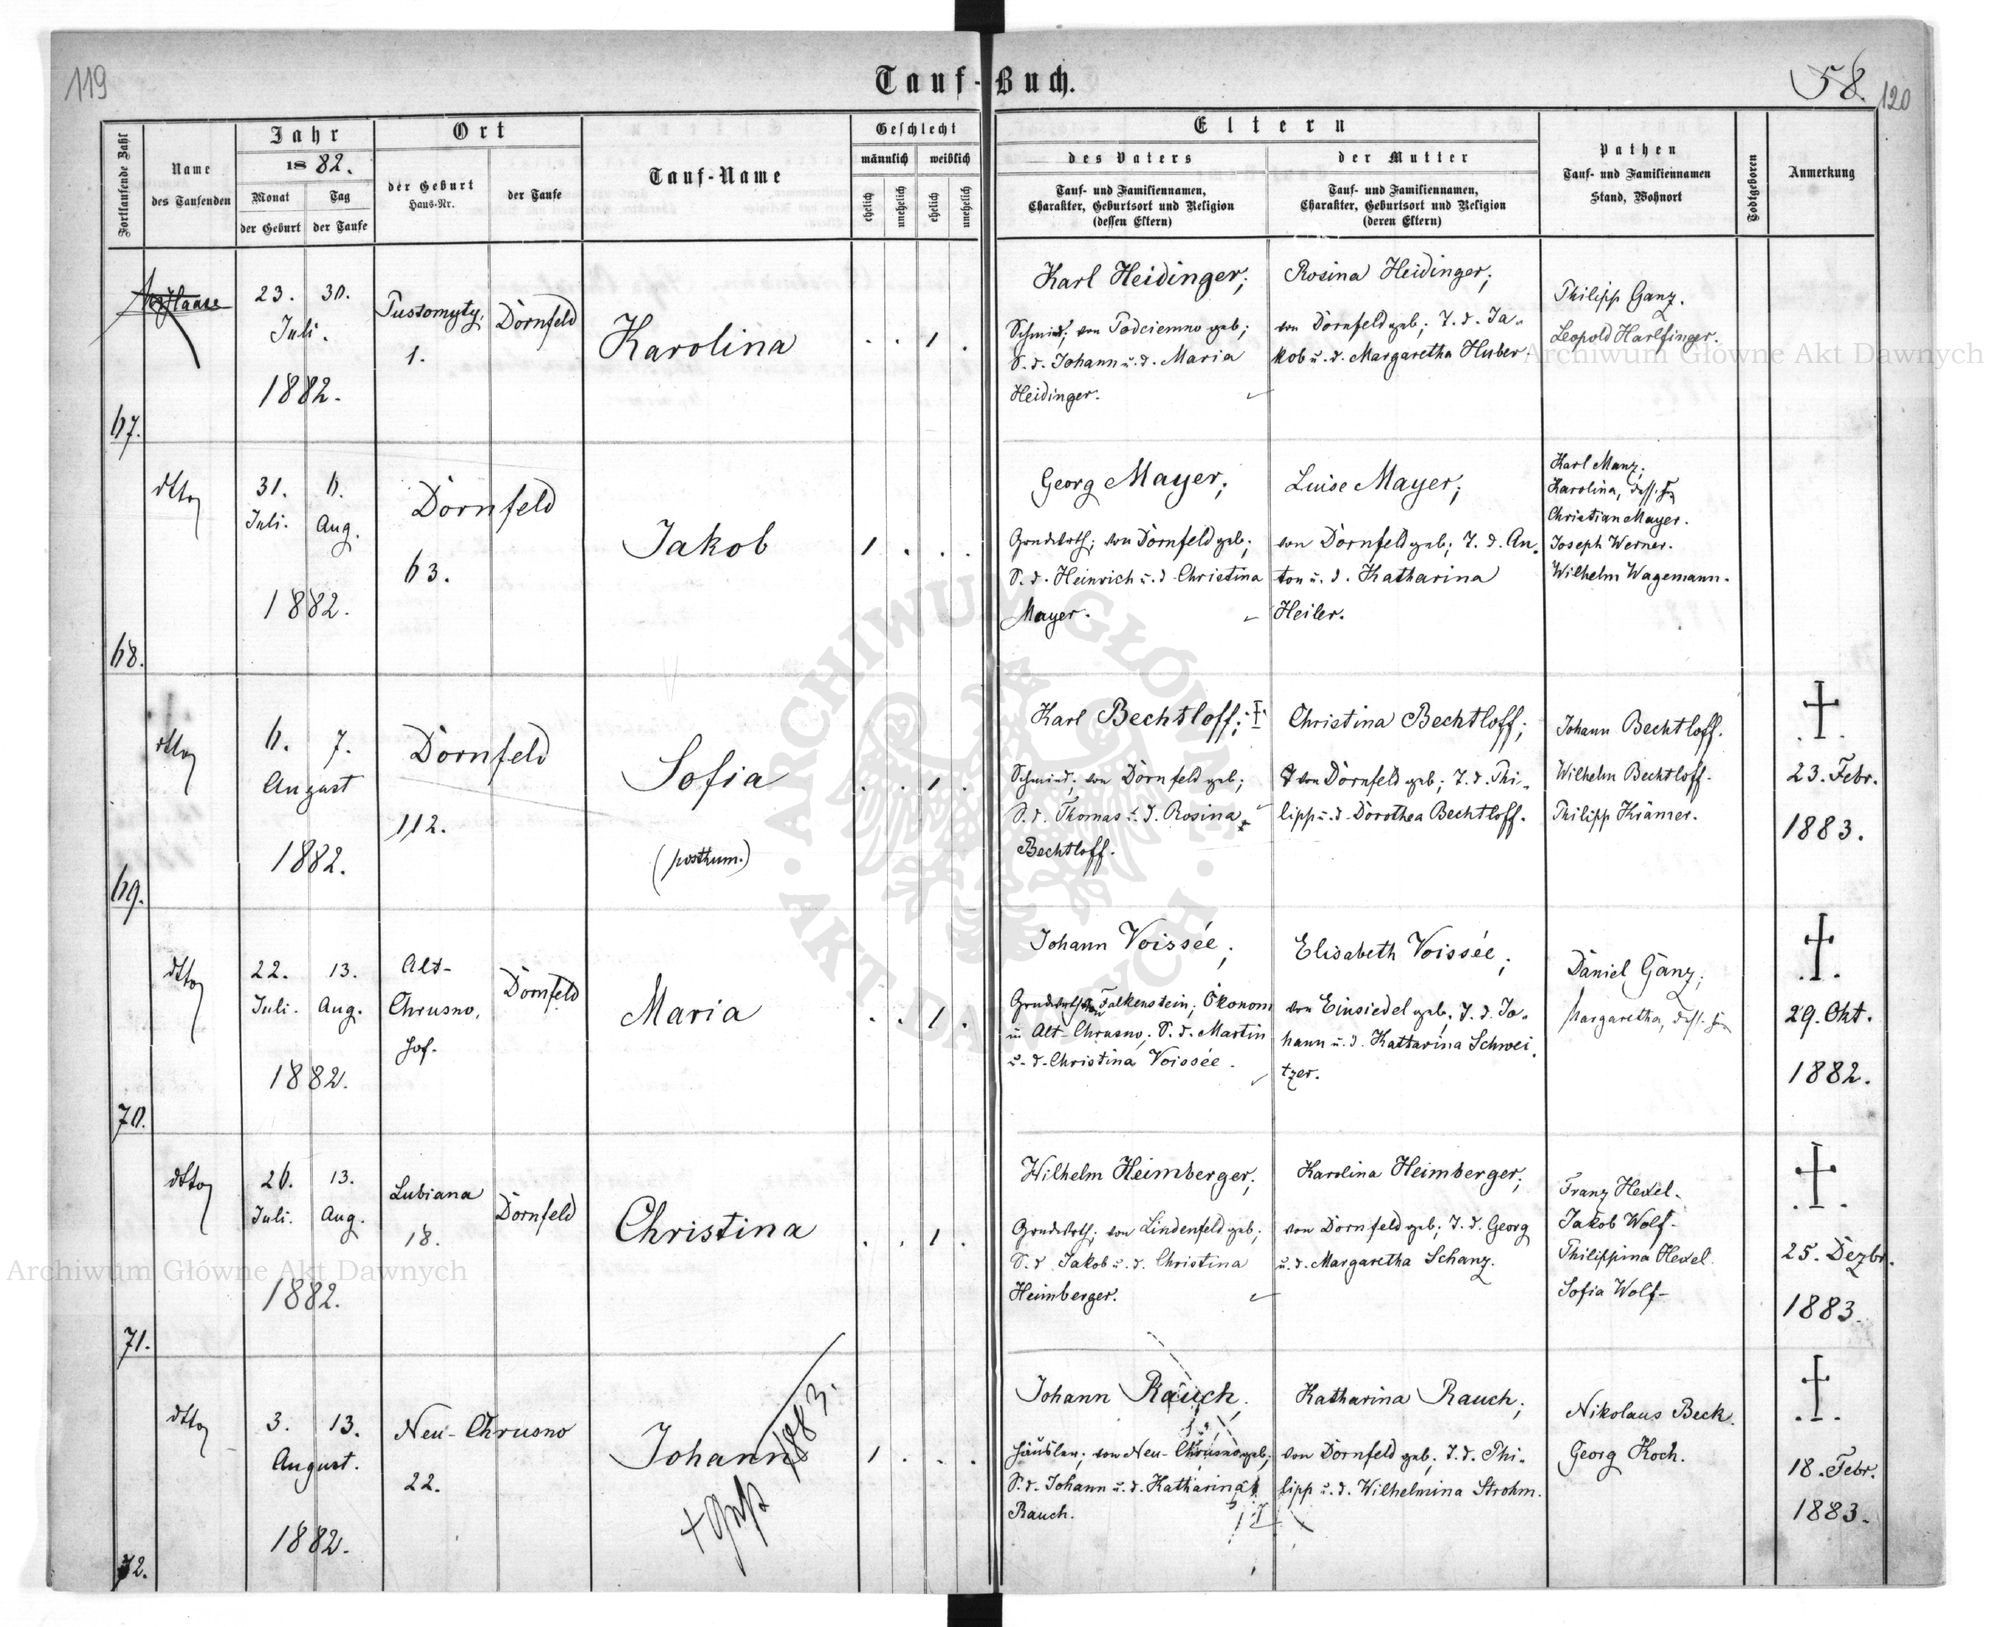 119
Tauf-Buch.
58.
120
Fortlaufende Zahl
Name
des Taufenden
Jahr
1882.
Monat
der Geburt
Tag
der Taufe
Ort
der Geburt
Haus-Nr.
der Taufe
Tauf-Name
Geschlecht
männlich
weiblich
ehelich
unehelich
ehelich
unehelich
Eltern
des Vaters
Tauf- und Familiennamen,
Charakter, Geburtsort und Religion
(dessen Eltern)
der Mutter
Tauf- und Familiennamen,
Charakter, Geburtsort und Religion
(deren Eltern)
Pathen
Tauf- und Familiennamen
Stand, Wohnort
Todtgeboren
Anmerkung
67.
Haase
23. 30.
Juli.
1882.
Pustomyty,
1.
Dornfeld
Karolina
. . 1 .
Karl Heidinger;
Schmied; von Podciemno geb;
S. d. Johann u. d. Maria
Heidinger.
Rosina Heidinger;
von Dornfeld geb; T. d. Ja-
kob u. d. Margaretha Huber.
Philipp Ganz.
Leopold Harlfinger.
68.
dtto
31. 6.
Juli. Aug.
1882.
Dornfeld
63.
Jakob
1 . . .
Georg Mayer;
Grundwrth; von Dornfeld geb;
S. d. Heinrich u. d. Christina
Mayer.
Luise Mayer;
von Dornfeld geb; T. d. An-
ton u. d. Katharina
Heiler.
Karl Manz;
Karolina, dess. Fr
Christian Mayer.
Joseph Werner.
Wilhelm Wagemann.
69.
dtto
6. 7.
August
1882.
Dornfeld
112.
Sofia
(posthum.)
. . 1 .
Karl Bechtloff; †
Schmied; von Dornfeld geb;
S. d. Thomas u. d. Rosina
Bechtloff.
Christina Bechtloff;
von Dornfeld geb; T. d. Phi-
lipp u. d. Dorothea Bechtloff.
Johann Bechtloff.
Wilhelm Bechtloff.
Philipp Krämer.
†
23. Febr.
1883.
70.
dtto
22. 13.
Juli. Aug.
1882.
Alt-
Chrusno,
Hof.
Dornfeld
Maria
. . 1 .
Johann Voissée;
Grundwrth von Falkenstein; Ökonom
in Alt-Chrusno; S. d. Martin
u. d. Christina Voissée.
Elisabeth Voissée;
von Einsiedel geb; T. d. Jo-
hann u. d. Kattarina Schwei-
tzer.
Daniel Ganz;
Margaretha, dess. Fr
†
29. Okt.
1882.
71.
dtto
26. 13.
Juli. Aug.
1882.
Lubiana
18.
Dornfeld
Christina
. . 1 .
Wilhelm Heimberger;
Grundwrth; von Lindenfeld geb;
S. d. Jakob u. d. Christina
Heimberger.
Karolina Heimberger;
von Dornfeld geb; T. d. Georg
u. d. Margaretha Schanz.
Franz Hexel.
Jakob Wolf.
Philippina Hexel.
Sofia Wolf.
†
25. Dezbr.
1883.
72.
dtto
3. 13.
August.
1882.
Neu-Chrusno
22.
Johann
1883.
1 . . .
Johann Rauch;
Häusler; von Neu-Chrusno geb;
S. d. Johann u. d. Katharina
Rauch.
Katharina Rauch;
von Dornfeld geb; T. d. Phi-
lipp u. d. Wilhelmina Strohm.
Nikolaus Beck.
Georg Koch.
†
18. Febr.
1883.
Archiwum Główne Akt Dawnych
Archiwum Główne Akt Dawnych
ARCHIWUM GŁÓWNE · AKT DAWNYCH ·